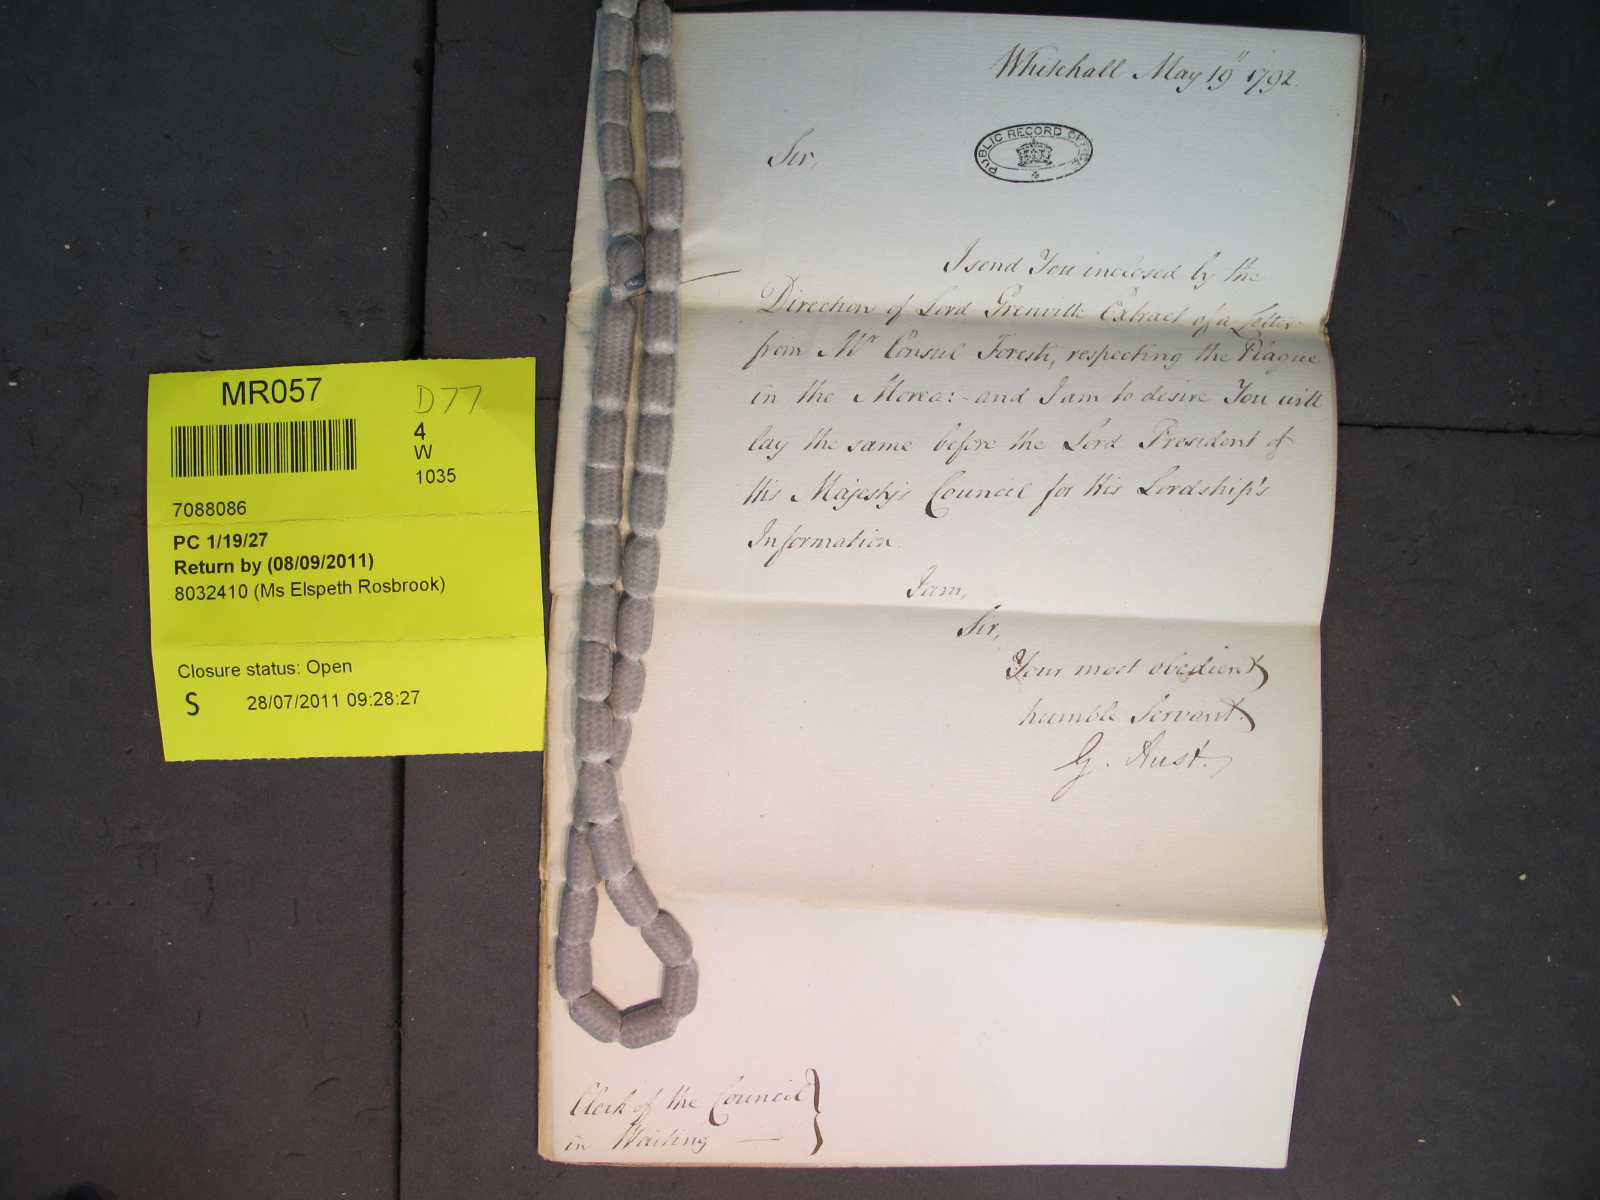 MR057
D77
4
W
1035
7088086
PC 1/19/27
Return by (08/09/2011)
8032410 (Ms Elspeth Rosbrook)
Closure status: Open
S
28/07/2011 09:28:27
Whitehall May 19th 1792.
PUBLIC RECORD OFFICE
Sir,
I send You inclosed by the
Direction of Lord Grenville Extract of a Letter
from Mr Consul Foresti, respecting the Plague
in the Morea:- and I am to desire You will
lay the same before the Lord President of
His Majesty's Council for His Lordship's
Information.
I am,
Sir,
Your most obedient
humble Servant.
G. Aust.
Clerk of the Council
in Waiting